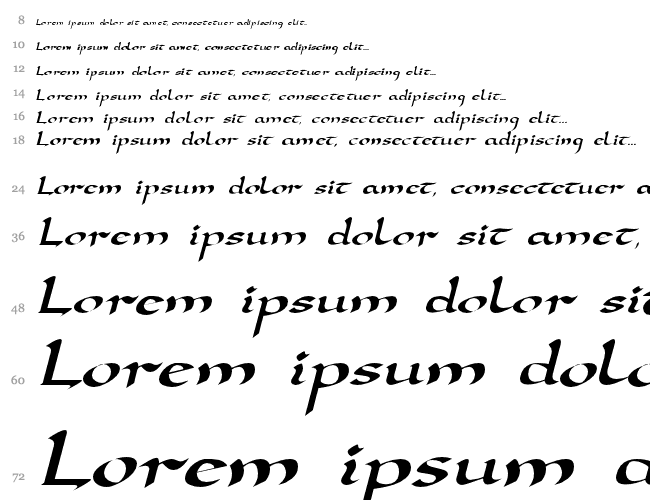 8 Lorem ipsum dolor sit amet, consectetuer adipiscing elit...
10 Lorem ipsum dolor sit amet, consectetuer adipiscing elit...
12 Lorem ipsum dolor sit amet, consectetuer adipiscing elit...
14 Lorem ipsum dolor sit amet, consectetuer adipiscing elit...
16 Lorem ipsum dolor sit amet, consectetuer adipiscing elit...
18 Lorem ipsum dolor sit amet, consectetuer adipiscing elit...
24 Lorem ipsum dolor sit amet, consectetuer a
36 Lorem ipsum dolor sit amet,
48 Lorem ipsum dolor sit
60 Lorem ipsum dolo
72 Lorem ipsum a